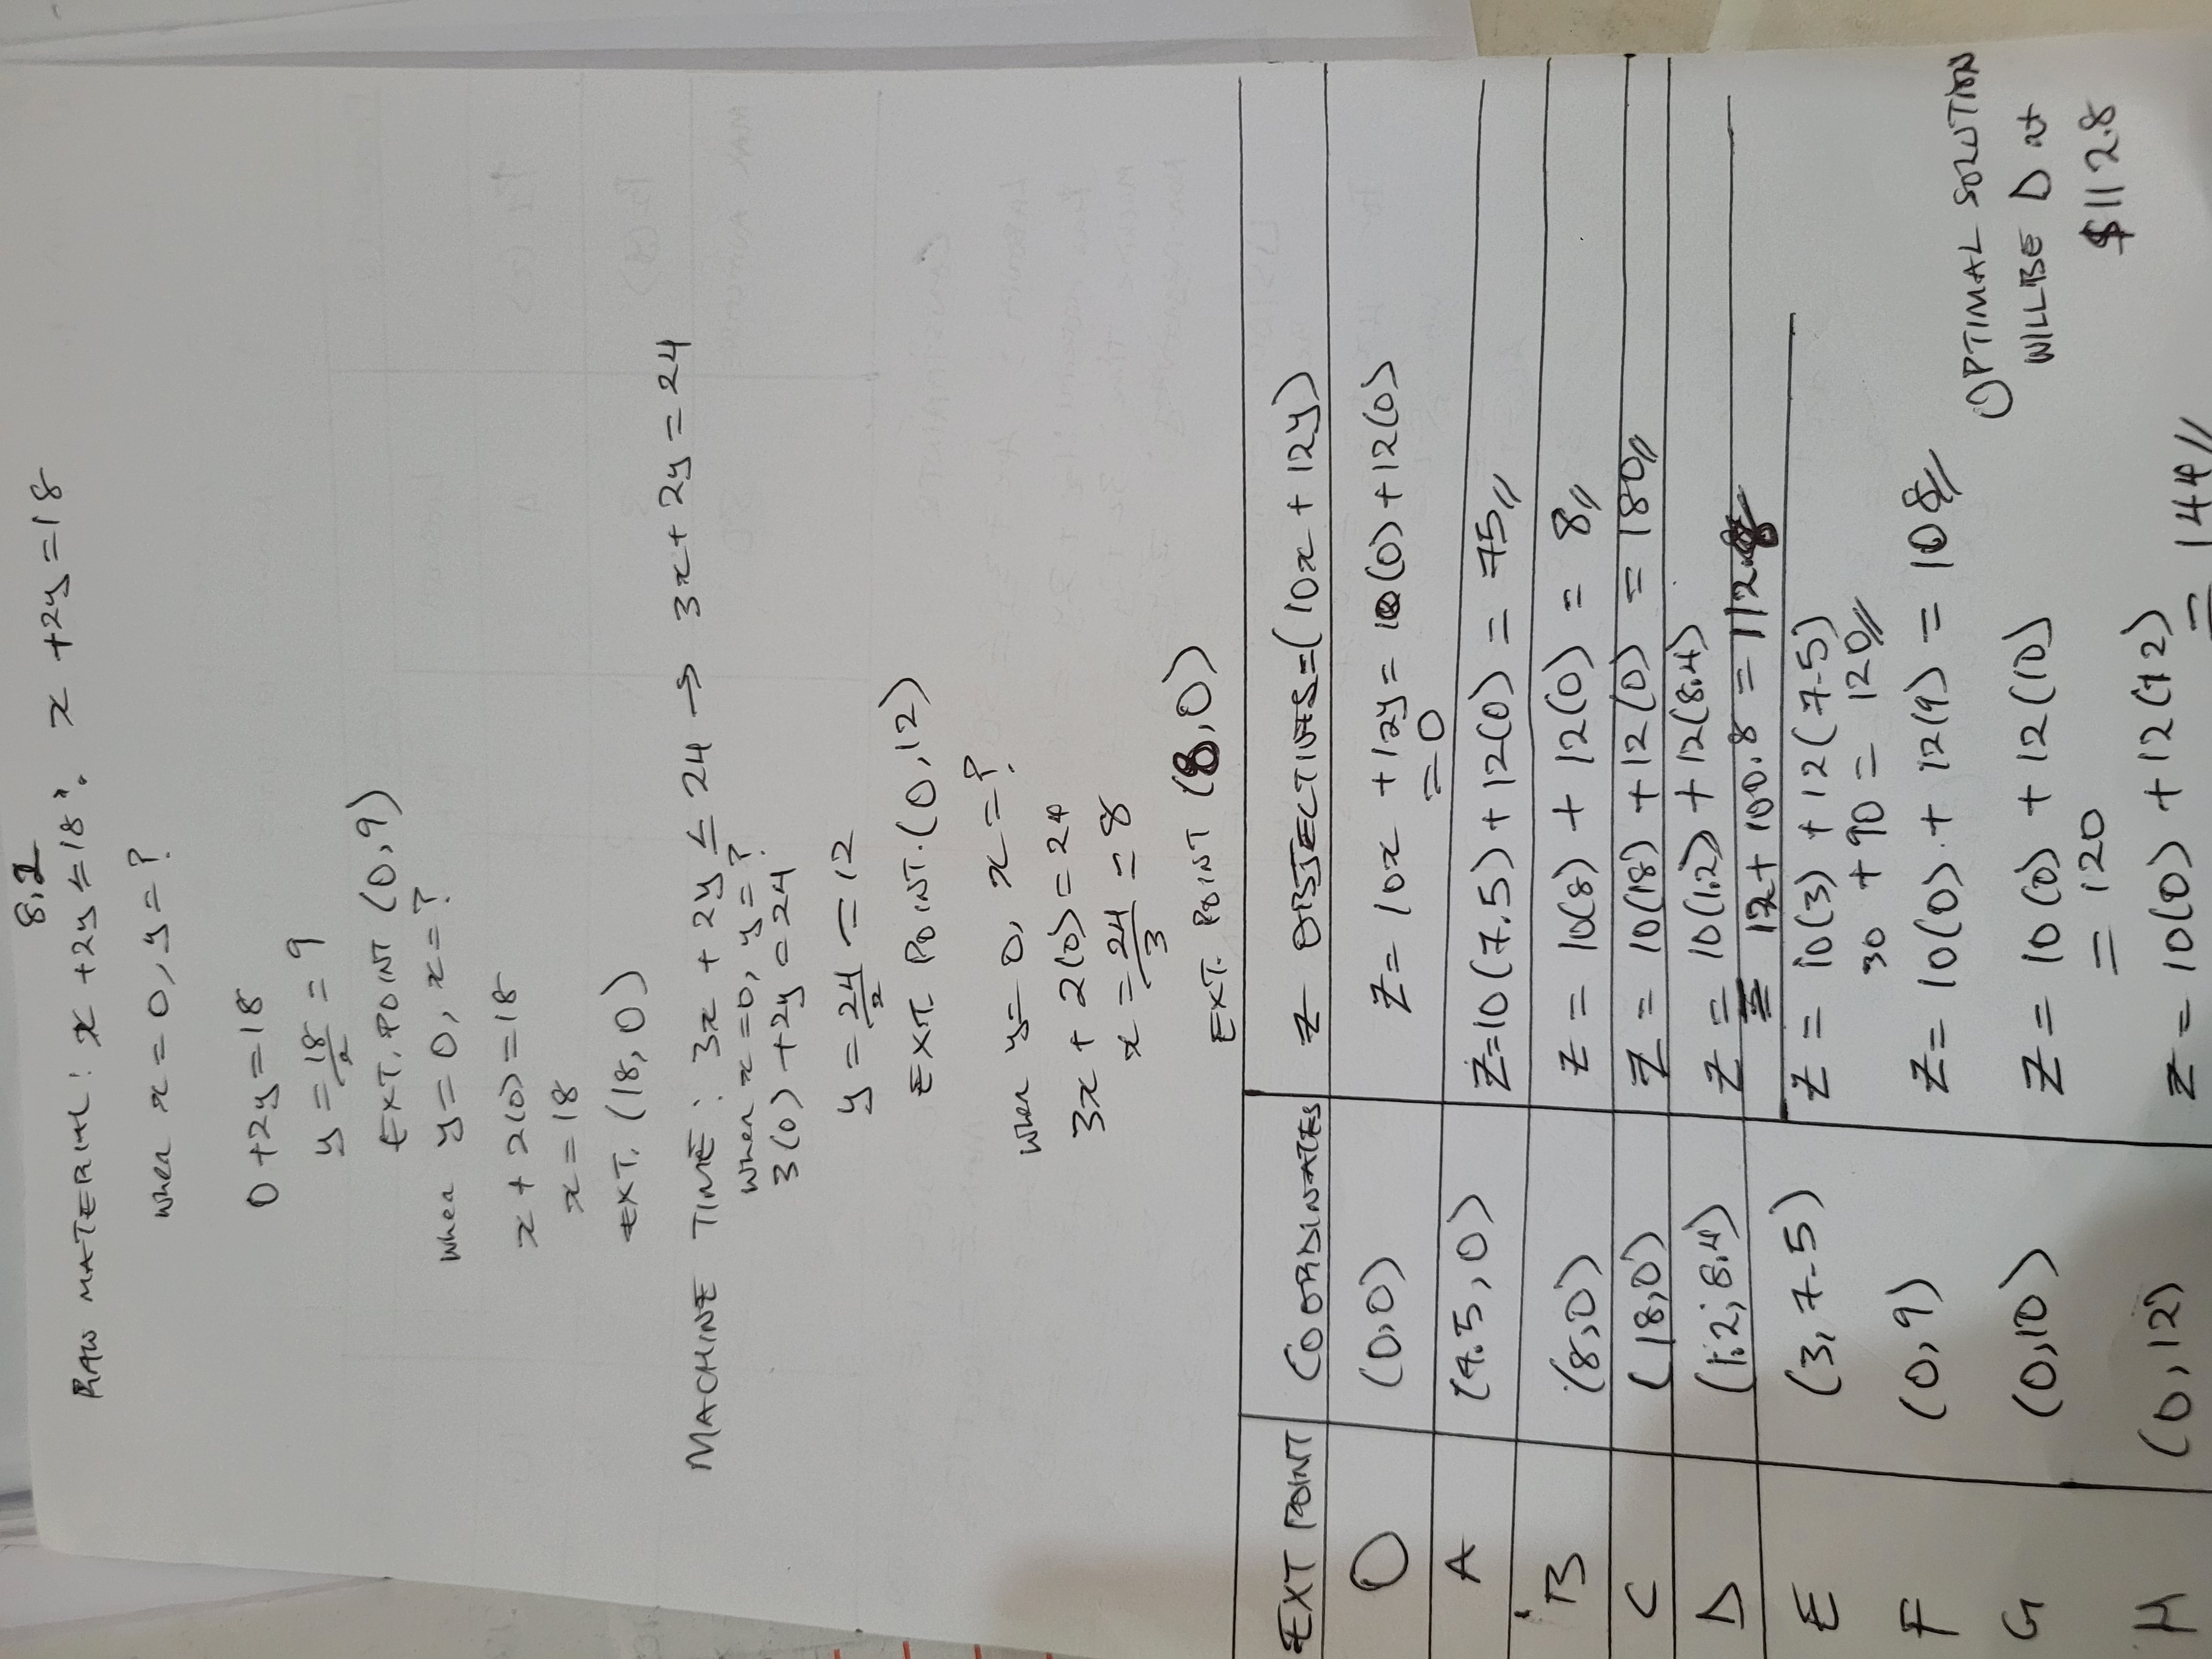 8,2
RAW MATERIAL: x + 2y ≤ 18 : x + 2y = 18
when x = 0, y = ?
0 + 2y = 18
y = 18/2 = 9
EXT. POINT (0,9)
when y = 0, x = ?
x + 2(0) = 18
x = 18
EXT. (18, 0)
MACHINE TIME : 3x + 2y ≤ 24 → 3x + 2y = 24
when x = 0, y = ?
3(0) + 2y = 24
y = 24/2 = 12
EXT. POINT. (0,12)
when y = 0, x = ?
3x + 2(0) = 24
x = 24/3 = 8
EXT. POINT (8,0)
EXT POINT COORDINATES Z OBJECTIVES = (10x + 12y)
O (0,0) Z = 10x + 12y = 10(0) + 12(0)
= 0
A (7.5, 0) Z = 10(7.5) + 12(0) = 75//
B (8,0) Z = 10(8) + 12(0) = 8//
C (18,0) Z = 10(18) + 12(0) = 180//
D (1.2; 8.4) Z = 10(1.2) + 12(8.4)
= 12 + 100.8 = 112.8
E (3, 7.5) Z = 10(3) + 12(7.5)
30 + 90 = 120//
F (0,9) Z = 10(0) + 12(9) = 108//
G (0,10) Z = 10(0) + 12(10)
= 120
H (0,12) Z = 10(0) + 12(12)
= 144//
OPTIMAL SOLUTION
WILL BE D at
$112.8